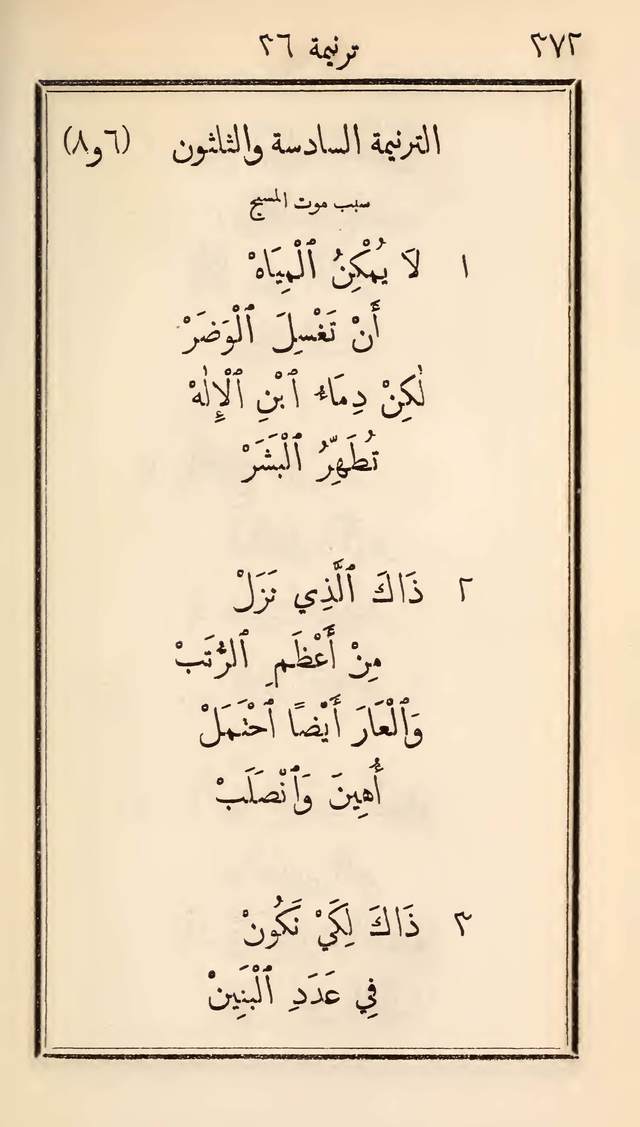 ٣٧٢ ترنيمة ٣٦
الترنيمة السادسة والثلثون (٦ و٨)
سبب موت المسيح
١ لاَ يُمْكِنُ ٱلْمِيَاهْ
أَنْ تَغْسِلَ ٱلْوَضَرْ
لٰكِنْ دِمَاءُ ٱبْنِ ٱلْإِلٰهْ
تُطَهِّرُ ٱلْبَشَرْ
٢ ذَاكَ ٱلَّذِي نَزَلْ
مِنْ أَعْظَمِ ٱلرُّتَبْ
وَٱلْعَارَ أَيْضًا ٱحْتَمَلْ
أُهِينَ وَٱنْصَلَبْ
٣ ذَاكَ لِكَيْ نَكُونْ
فِي عَدَدِ ٱلْبَنِينْ